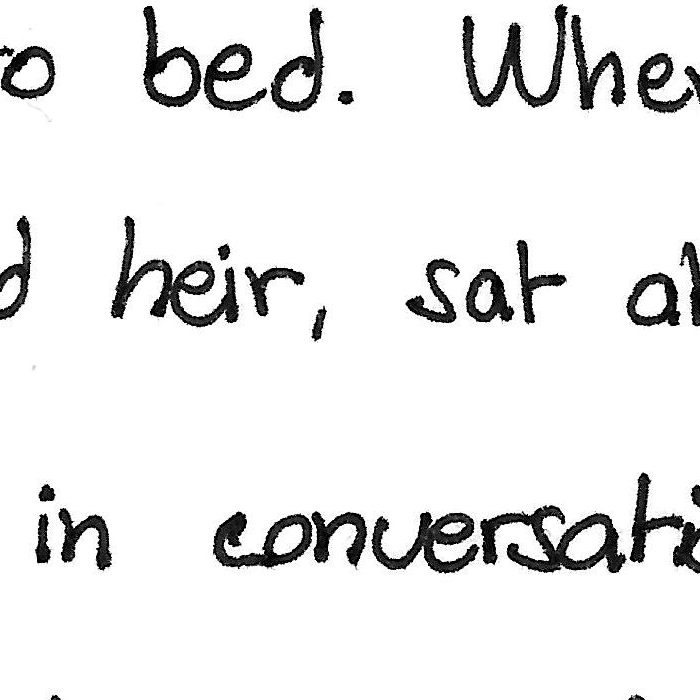 to bed. When
d heir, sat al
in conversati